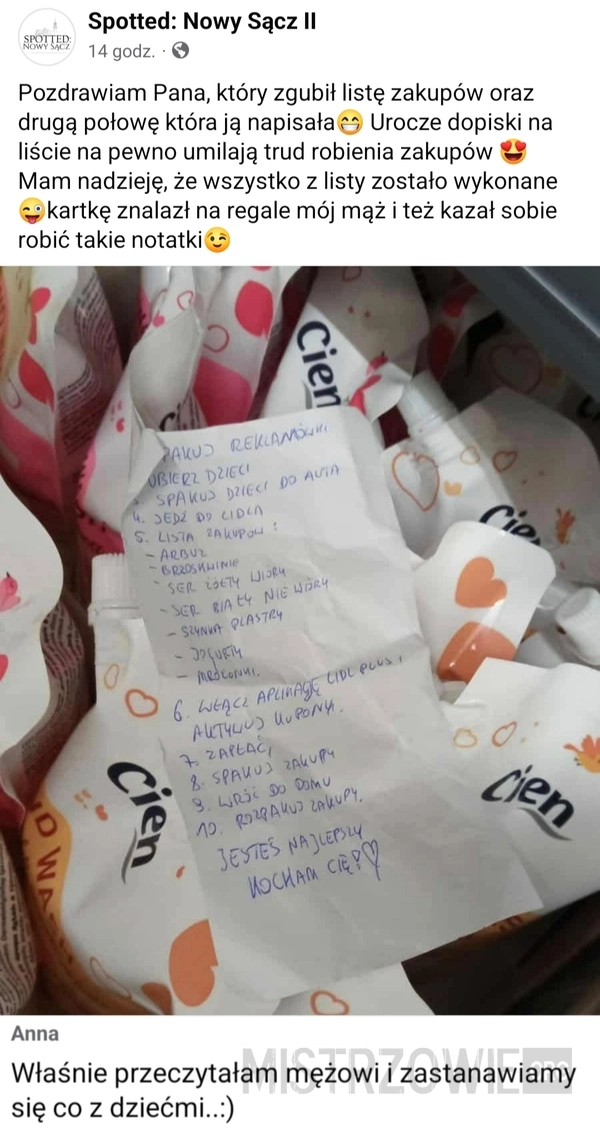 SPOTTED:
NOWY SĄCZ
Spotted: Nowy Sącz II
14 godz. ·
Pozdrawiam Pana, który zgubił listę zakupów oraz
drugą połowę która ją napisała😁 Urocze dopiski na
liście na pewno umilają trud robienia zakupów 😍
Mam nadzieję, że wszystko z listy zostało wykonane
😜kartkę znalazł na regale mój mąż i też kazał sobie
robić takie notatki😉
Cien
PAKUJ REKLAMÓWKI
UBIERZ DZIECI
SPAKUJ DZIECI DO AUTA
4. JEDŹ DO LIDLA
5. LISTA ZAKUPÓW!
- ARBUZ
- BRZOSKWINIE
- SER ŻÓŁTY WIÓRY
- SER BIAŁY NIE WIÓRY
- SZYNKA PLASTRY
- JOGURTY
6. WŁĄCZ APLIKACJĘ LIDL PLUS I
AKTYWUJ KUPONY.
7. ZAPŁAĆ,
8. SPAKUJ ZAKUPY
9. WRÓĆ DO DOMU
10. ROZPAKUJ ZAKUPY.
JESTEŚ NAJLEPSZY
KOCHAM CIĘ!♡
Cien
Cien
Cien
Anna
Właśnie przeczytałam mężowi i zastanawiamy
się co z dziećmi..:)
MISTRZOWIE.ORG